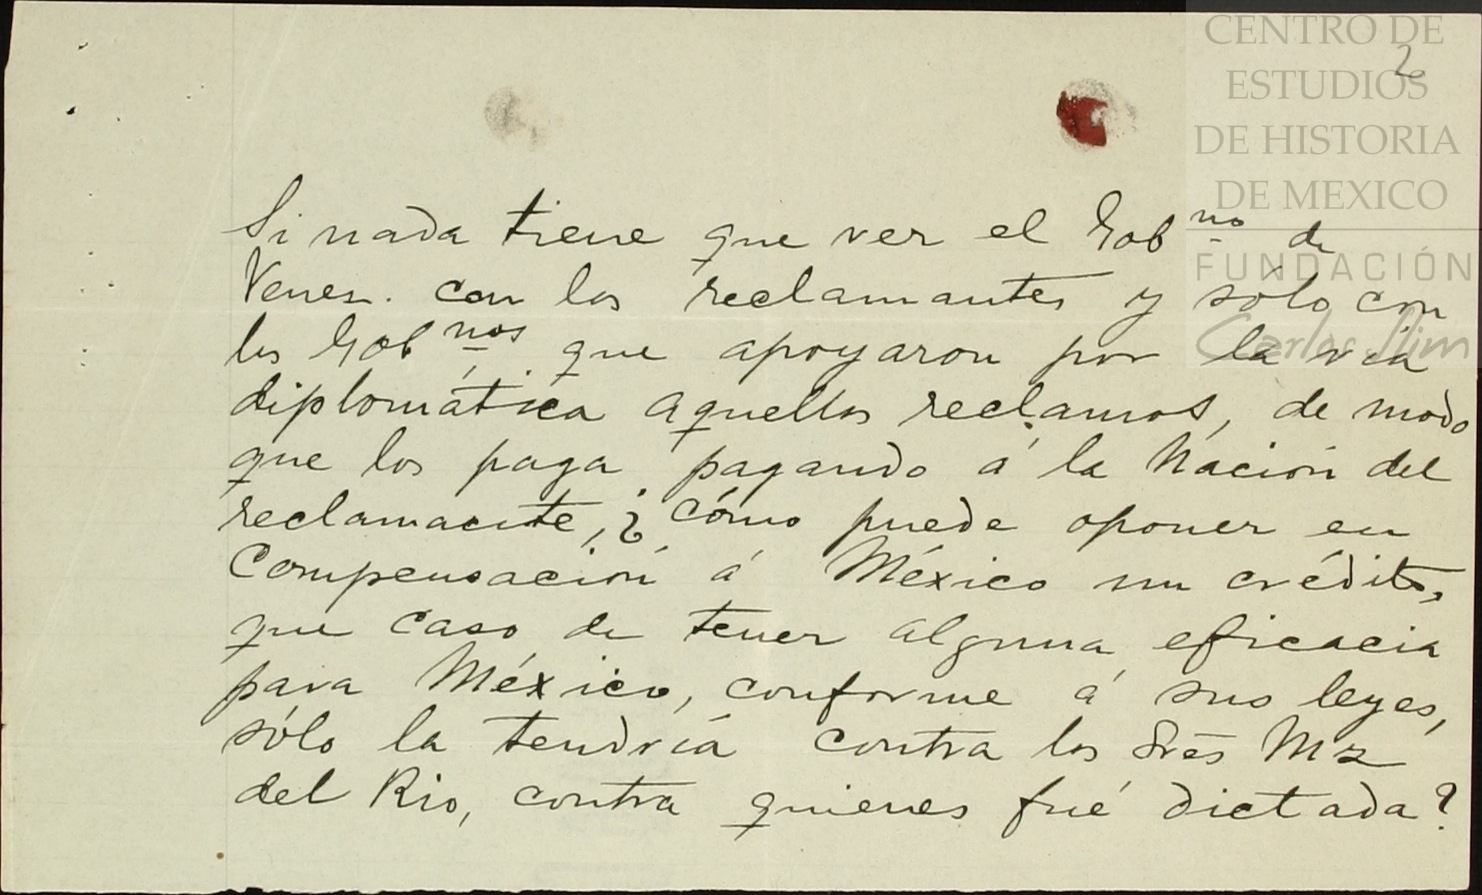 CENTRO DE
ESTUDIOS
DE HISTORIA
DE MEXICO
FUNDACIÓN
Carlos Slim
2
Si nada tiene que ver el Gobno de
Venez. con los reclamantes y sólo con
los Gobnos que apoyaron por la vía
diplomática aquellos reclamos, de modo
que los paga pagando á la Nación del
reclamante, ¿cómo puede oponer en
Compensación á México un crédito,
que caso de tener alguna eficacia
para México, conforme á sus leyes,
sólo la tendría contra los Sres Mz
del Rio, contra quienes fué dictada?